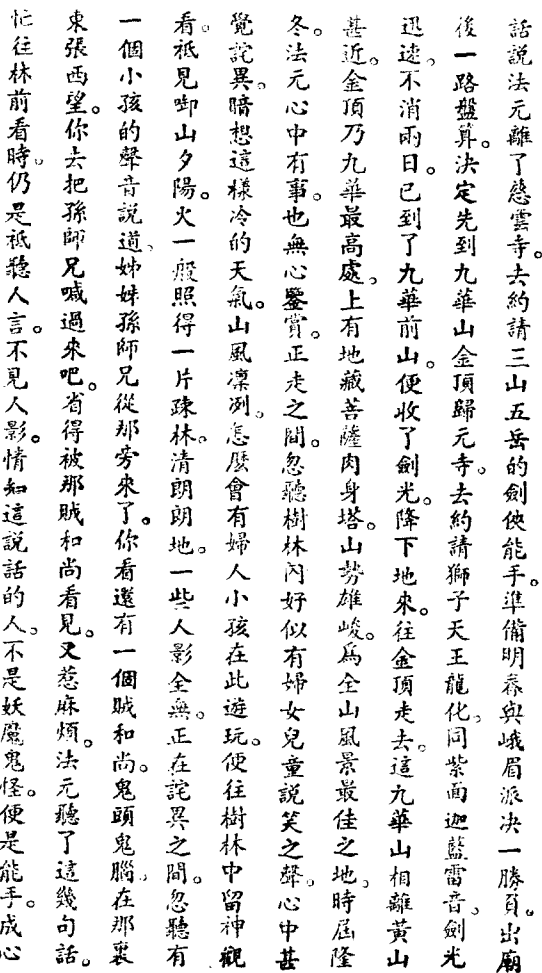 話說法元離了慈雲寺。去約請三山五岳的劍俠能手。準備明春與峨眉派决一勝負。出廟
後一路盤算。決定先到九華山金頂歸元寺。去約請獅子天王龍化。同紫面迦藍雷音。劍光
迅速。不消兩日。已到了九華前山。便收了劍光。降下地來。往金頂走去。這九華山相離黃山
甚近。金頂乃九華最高處。上有地藏菩薩肉身塔。山勢雄峻。爲全山風景最佳之地。時屆隆
冬。法元心中有事。也無心鑒賞。正走之間。忽聽樹林內好似有婦女兒童說笑之聲。心中甚
覺詫異。暗想這樣冷的天氣。山風凜冽。怎麼會有婦人小孩在此遊玩。便往樹林中留神觀
看。祇見啣山夕陽。火一般照得一片疎林。清朗朗地。一些人影全無。正在詫異之間。忽聽有
一個小孩的聲音說道。姊妹孫師兄從那旁來了。你看還有一個賊和尚。鬼頭鬼腦。在那裏
東張西望。你去把孫師兄喊過來吧。省得被那賊和尚看見。又惹麻煩。法元聽了這幾句話。
忙往林前看時。仍是祇聽人言。不見人影。情知這說話的人。不是妖魔鬼怪。便是能手。成心